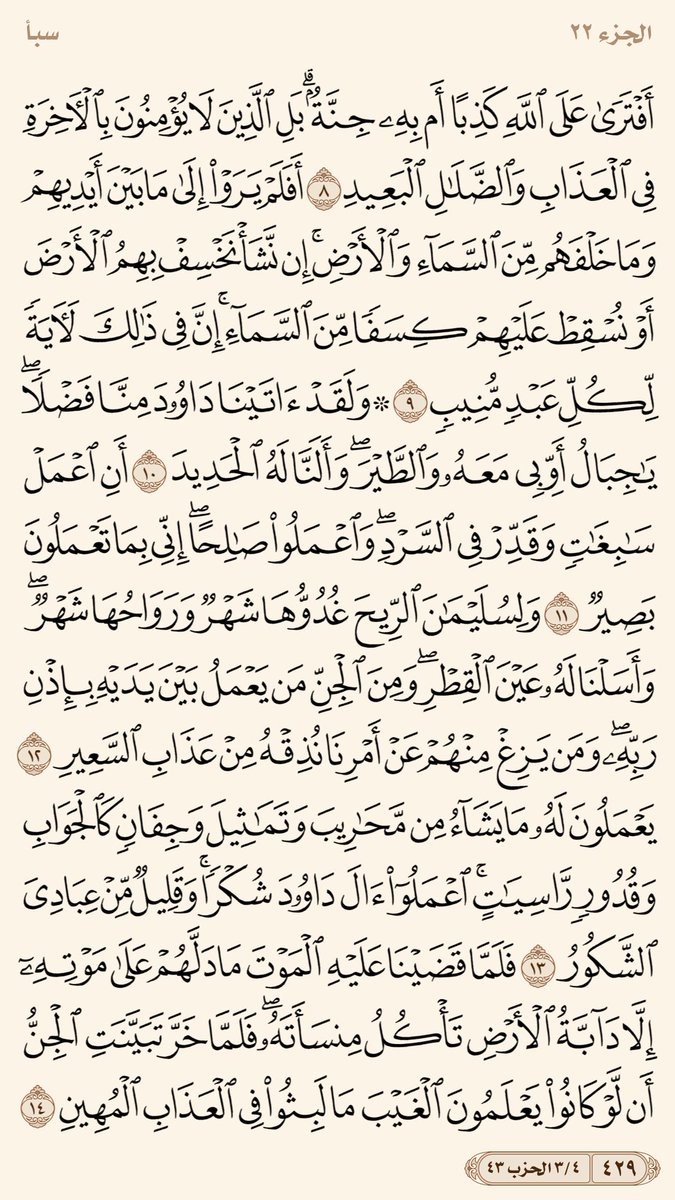 الجزء ٢٢ سبأ
أَفْتَرَىٰ عَلَى ٱللَّهِ كَذِبًا أَم بِهِۦ جِنَّةٌۢ ۗ بَلِ ٱلَّذِينَ لَا يُؤْمِنُونَ بِٱلْـَٔاخِرَةِ
فِى ٱلْعَذَابِ وَٱلضَّلَـٰلِ ٱلْبَعِيدِ ٨ أَفَلَمْ يَرَوْا۟ إِلَىٰ مَا بَيْنَ أَيْدِيهِمْ
وَمَا خَلْفَهُم مِّنَ ٱلسَّمَآءِ وَٱلْأَرْضِ ۚ إِن نَّشَأْ نَخْسِفْ بِهِمُ ٱلْأَرْضَ
أَوْ نُسْقِطْ عَلَيْهِمْ كِسَفًا مِّنَ ٱلسَّمَآءِ ۚ إِنَّ فِى ذَٰلِكَ لَـَٔايَةً
لِّكُلِّ عَبْدٍ مُّنِيبٍ ٩ ۞ وَلَقَدْ ءَاتَيْنَا دَاوُۥدَ مِنَّا فَضْلًا ۖ
يَـٰجِبَالُ أَوِّبِى مَعَهُۥ وَٱلطَّيْرَ ۖ وَأَلَنَّا لَهُ ٱلْحَدِيدَ ١٠ أَنِ ٱعْمَلْ
سَـٰبِغَـٰتٍ وَقَدِّرْ فِى ٱلسَّرْدِ ۖ وَٱعْمَلُوا۟ صَـٰلِحًا ۖ إِنِّى بِمَا تَعْمَلُونَ
بَصِيرٌ ١١ وَلِسُلَيْمَـٰنَ ٱلرِّيحَ غُدُوُّهَا شَهْرٌ وَرَوَاحُهَا شَهْرٌ ۖ
وَأَسَلْنَا لَهُۥ عَيْنَ ٱلْقِطْرِ ۖ وَمِنَ ٱلْجِنِّ مَن يَعْمَلُ بَيْنَ يَدَيْهِ بِإِذْنِ
رَبِّهِۦ ۖ وَمَن يَزِغْ مِنْهُمْ عَنْ أَمْرِنَا نُذِقْهُ مِنْ عَذَابِ ٱلسَّعِيرِ ١٢
يَعْمَلُونَ لَهُۥ مَا يَشَآءُ مِن مَّحَـٰرِيبَ وَتَمَـٰثِيلَ وَجِفَانٍ كَٱلْجَوَابِ
وَقُدُورٍ رَّاسِيَـٰتٍ ۚ ٱعْمَلُوٓا۟ ءَالَ دَاوُۥدَ شُكْرًا ۚ وَقَلِيلٌ مِّنْ عِبَادِىَ
ٱلشَّكُورُ ١٣ فَلَمَّا قَضَيْنَا عَلَيْهِ ٱلْمَوْتَ مَا دَلَّهُمْ عَلَىٰ مَوْتِهِۦٓ
إِلَّا دَآبَّةُ ٱلْأَرْضِ تَأْكُلُ مِنسَأَتَهُۥ ۖ فَلَمَّا خَرَّ تَبَيَّنَتِ ٱلْجِنُّ
أَن لَّوْ كَانُوا۟ يَعْلَمُونَ ٱلْغَيْبَ مَا لَبِثُوا۟ فِى ٱلْعَذَابِ ٱلْمُهِينِ ١٤
٤٢٩ ٣/٤ الحزب ٤٣